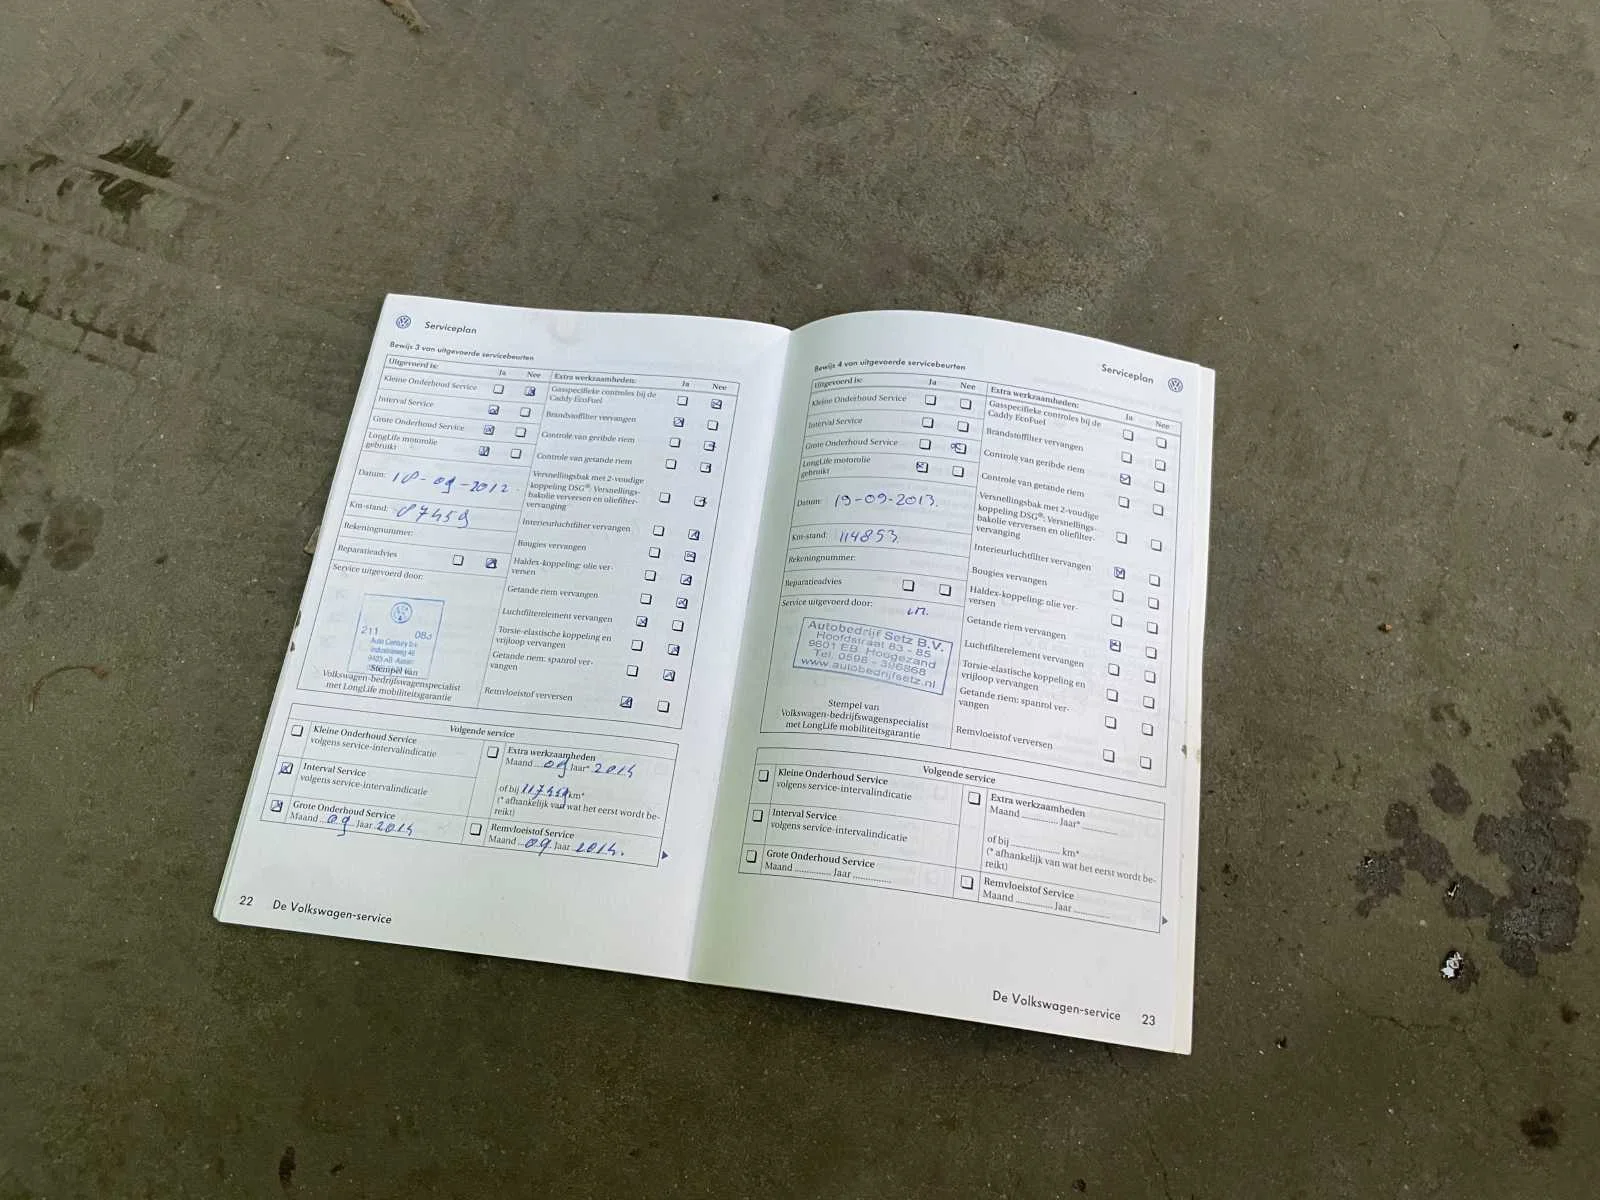 Serviceplan
Bewijs 3 van uitgevoerde servicebeurten
Uitgevoerd is: Ja Nee
Kleine Onderhoud Service
Interval Service
Grote Onderhoud Service
LongLife motorolie
gebruikt
Datum: 18-09-2012.
Km-stand: 87459
Rekeningnummer:
Reparatieadvies
Service uitgevoerd door:
211 08
Auto Century b.v.
Industrieweg 46
Assen
Stempel van
Volkswagen-bedrijfswagenspecialist
met LongLife mobiliteitsgarantie
Extra werkzaamheden: Ja Nee
Gasspecifieke controles bij de
Caddy EcoFuel
Brandstoffilter vervangen
Controle van geribde riem
Controle van getande riem
Versnellingsbak met 2-voudige
koppeling DSG®: Versnellings-
bakolie verversen en oliefilter-
vervanging
Interieurluchtfilter vervangen
Bougies vervangen
Haldex-koppeling: olie ver-
versen
Getande riem vervangen
Luchtfilterelement vervangen
Torsie-elastische koppeling en
vrijloop vervangen
Getande riem: spanrol ver-
vangen
Remvloeistof verversen
Volgende service
Kleine Onderhoud Service
volgens service-intervalindicatie
Interval Service
volgens service-intervalindicatie
Grote Onderhoud Service
Maand 09 Jaar 2014
Extra werkzaamheden
Maand 09 Jaar* 2014
of bij 117459 km*
(* afhankelijk van wat het eerst wordt be-
reikt)
Remvloeistof Service
Maand 09 Jaar 2014.
22 De Volkswagen-service
Serviceplan
Bewijs 4 van uitgevoerde servicebeurten
Uitgevoerd is: Ja Nee
Kleine Onderhoud Service
Interval Service
Grote Onderhoud Service
LongLife motorolie
gebruikt
Datum: 19-09-2013.
Km-stand: 114853.
Rekeningnummer:
Reparatieadvies
Service uitgevoerd door:
Autobedrijf Setz B.V.
Hoofdstraat 83 - 85
9601 EB Hoogezand
Tel. 0598 - 396868
www.autobedrijfsetz.nl
Stempel van
Volkswagen-bedrijfswagenspecialist
met LongLife mobiliteitsgarantie
Extra werkzaamheden: Ja Nee
Gasspecifieke controles bij de
Caddy EcoFuel
Brandstoffilter vervangen
Controle van geribde riem
Controle van getande riem
Versnellingsbak met 2-voudige
koppeling DSG®: Versnellings-
bakolie verversen en oliefilter-
vervanging
Interieurluchtfilter vervangen
Bougies vervangen
Haldex-koppeling: olie ver-
versen
Getande riem vervangen
Luchtfilterelement vervangen
Torsie-elastische koppeling en
vrijloop vervangen
Getande riem: spanrol ver-
vangen
Remvloeistof verversen
Volgende service
Kleine Onderhoud Service
volgens service-intervalindicatie
Interval Service
volgens service-intervalindicatie
Grote Onderhoud Service
Maand ............. Jaar .............
Extra werkzaamheden
Maand ............. Jaar* .............
of bij ................ km*
(* afhankelijk van wat het eerst wordt be-
reikt)
Remvloeistof Service
Maand ............. Jaar .............
De Volkswagen-service 23